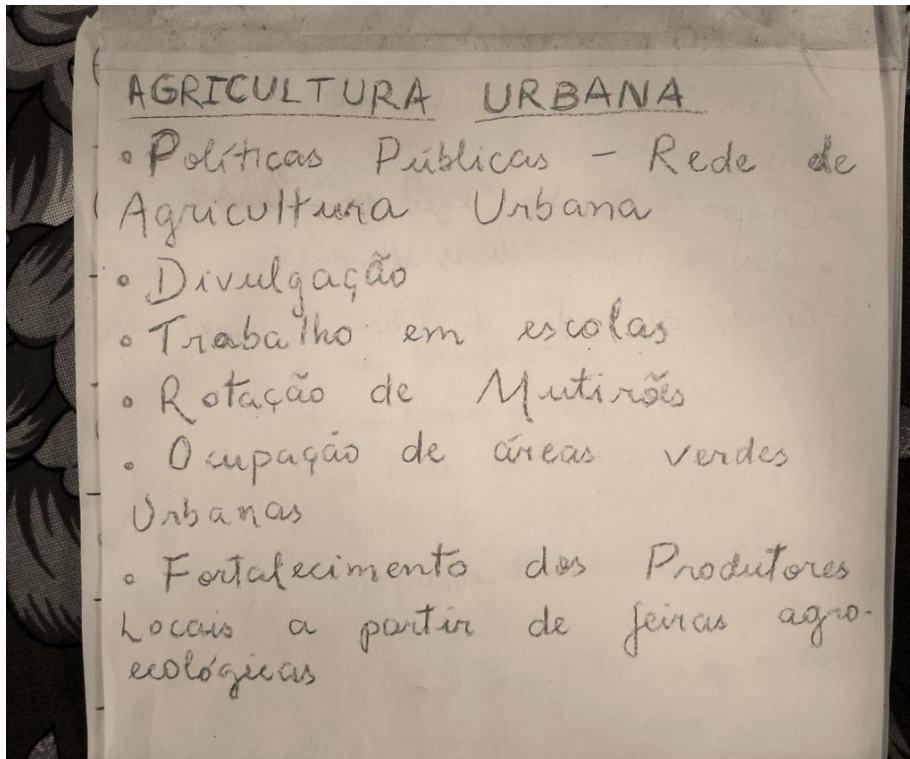 AGRICULTURA URBANA
• Políticas Públicas - Rede de
Agricultura Urbana
• Divulgação
• Trabalho em escolas
• Rotação de Mutirões
• Ocupação de áreas verdes
Urbanas
• Fortalecimento dos Produtores
Locais a partir de feiras agro-
ecológicas